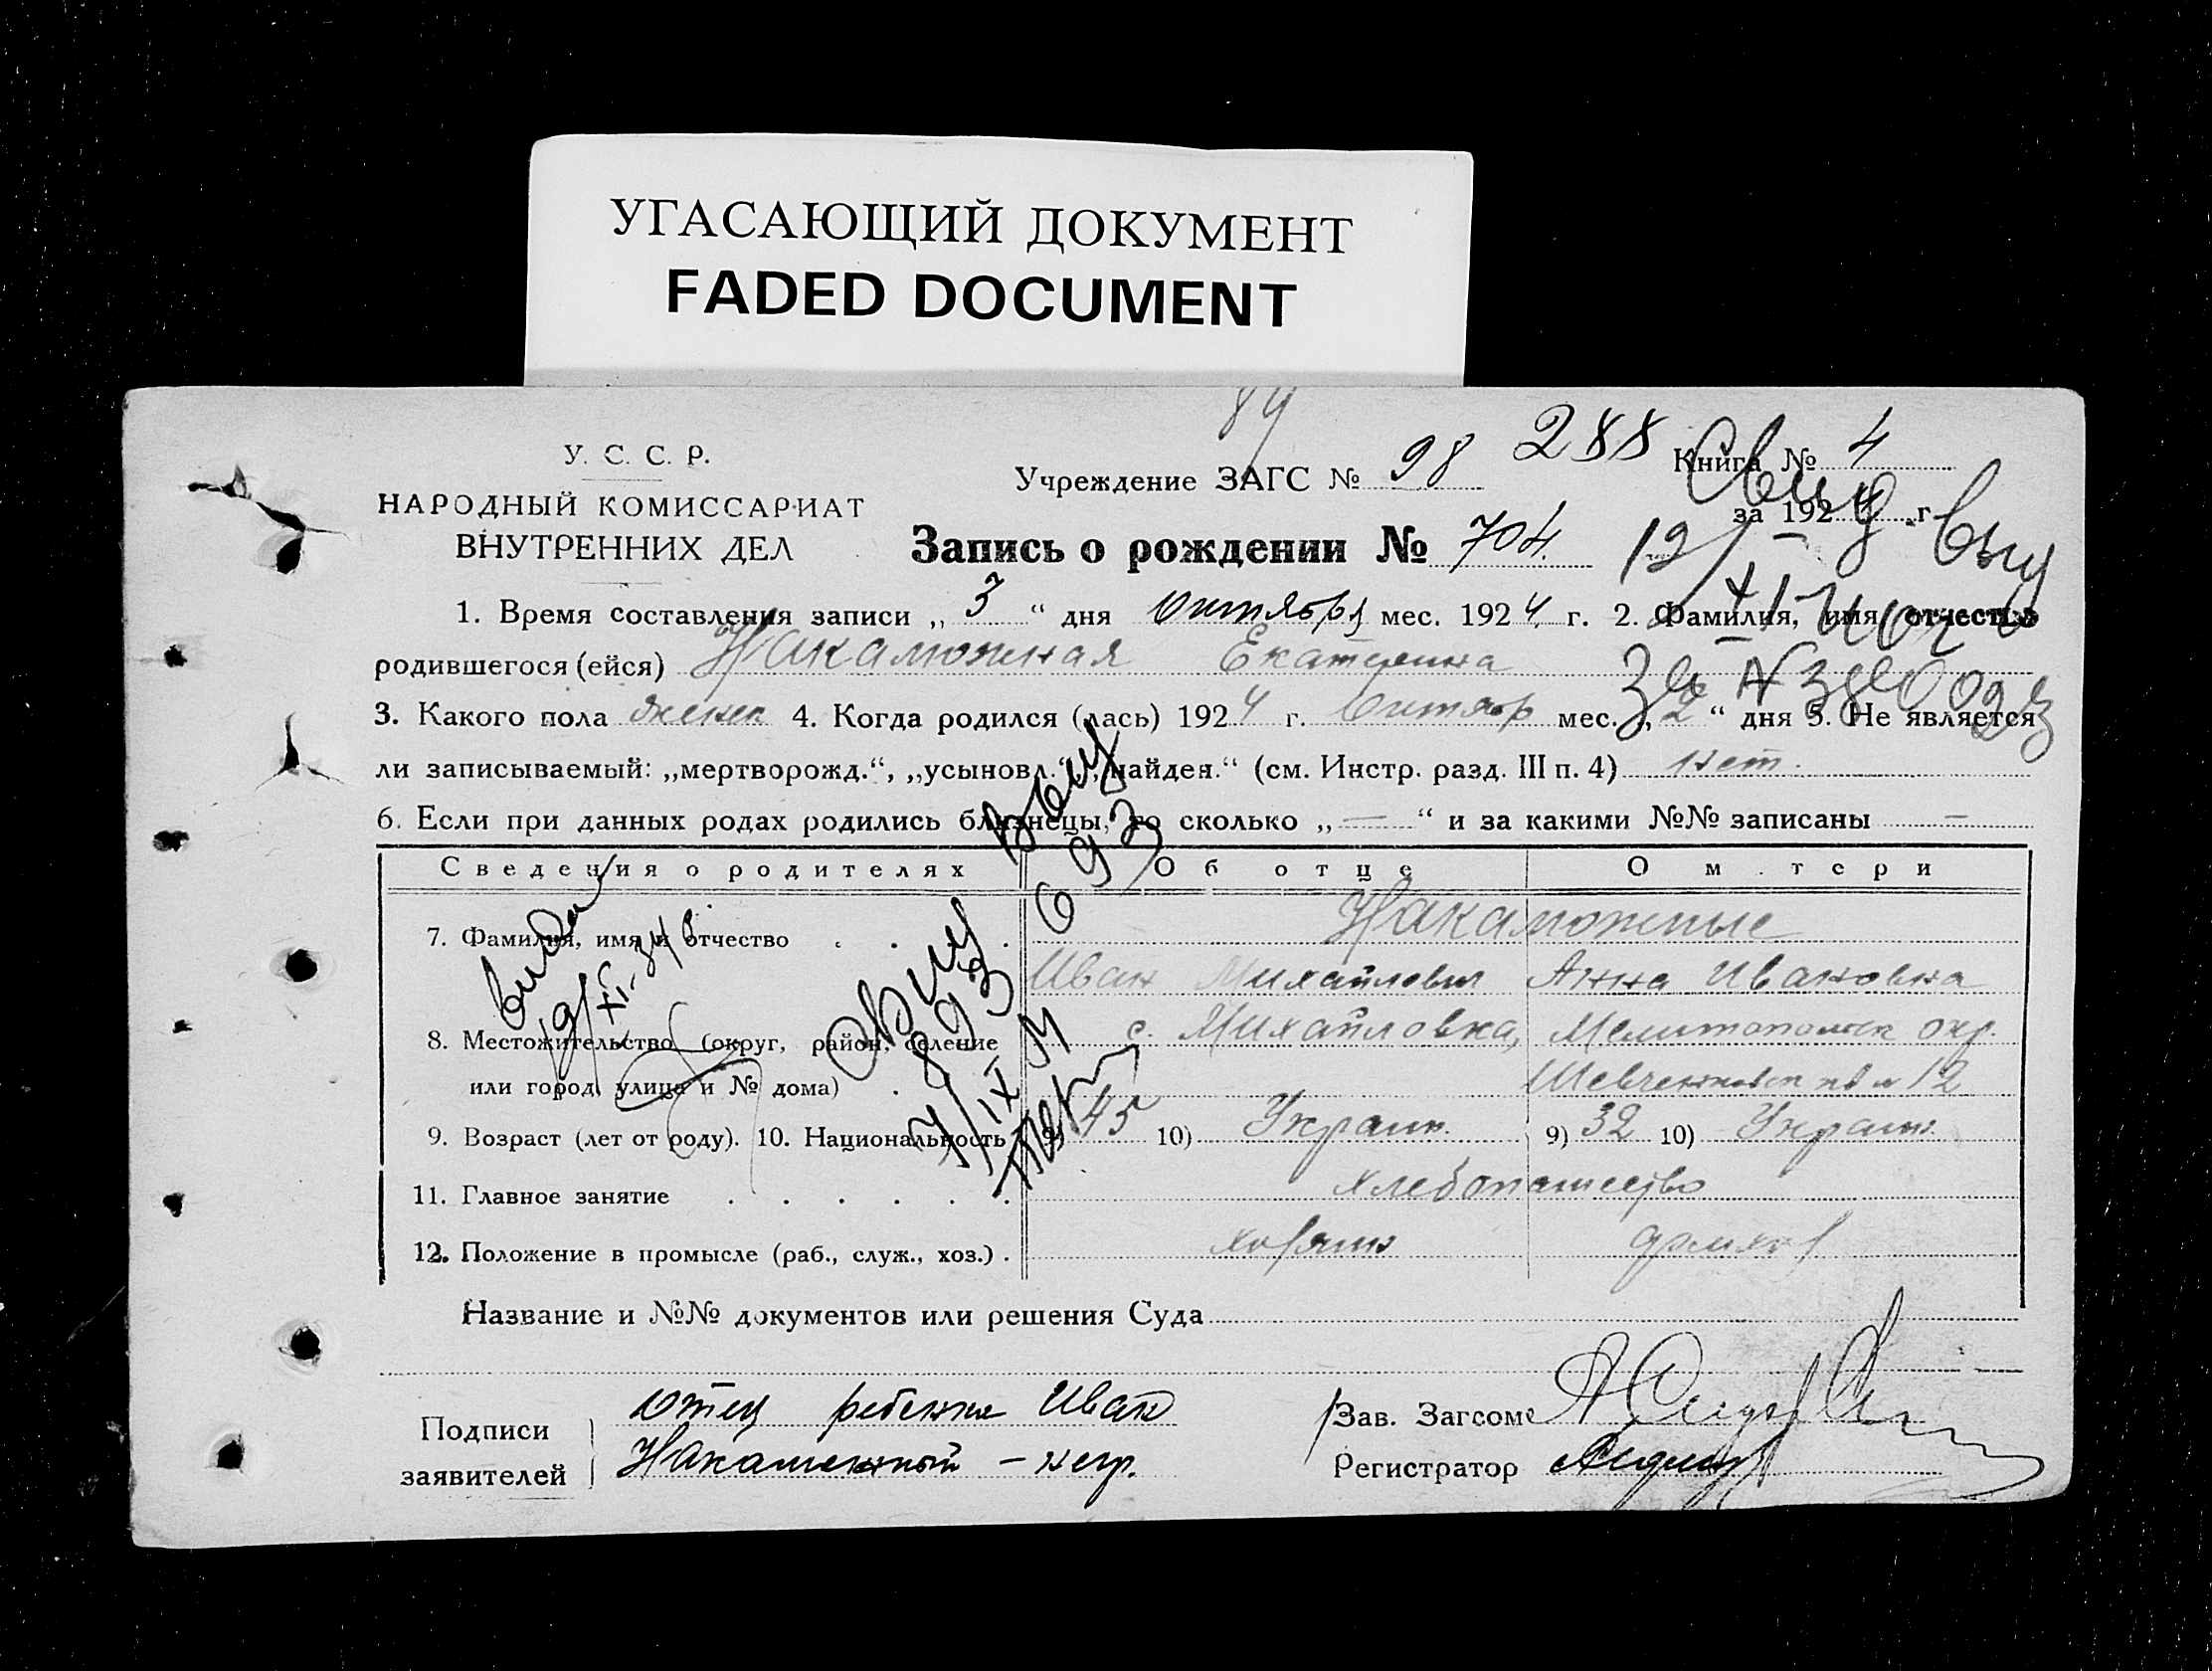 УГАСАЮЩИЙ ДОКУМЕНТ
FADED DOCUMENT
84
У. С. С. Р.
НАРОДНЫЙ КОМИССАРИАТ
ВНУТРЕННИХ ДЕЛ
Учреждение ЗАГС № 98 288 Книга № 4
за 1924 г.
Запись о рождении № 704.
1. Время составления записи „ 3 “ дня Октября мес. 1924 г. 2. Фамилия, имя, отчество
родившегося (ейся) Накаможная Екатерина
3. Какого пола женск 4. Когда родился (лась) 1924 г. Октябр мес. „ 2 “ дня 5. Не является
ли записываемый: „мертворожд.“, „усыновл.“, „найден.“ (см. Инстр. разд. III п. 4) нет.
6. Если при данных родах родились близнецы, то сколько „ — “ и за какими №№ записаны —
Сведения о родителях Об отце О м тери
7. Фамилия, имя и отчество Накаможные
Иван Михайлович Анна Ивановна
8. Местожительство (округ, район, селение с. Михайловка, Мелитопольск окр.
или город, улица и № дома) 12
9. Возраст (лет от роду). 10. Национальность 9) 45 10) Украин. 9) 32 10) Украин.
11. Главное занятие хлебопашество
12. Положение в промысле (раб., служ., хоз.)
Название и №№ документов или решения Суда
Подписи заявителей Отец ребенка Иван
Накаможный – негр.
Зав. Загсом
Регистратор